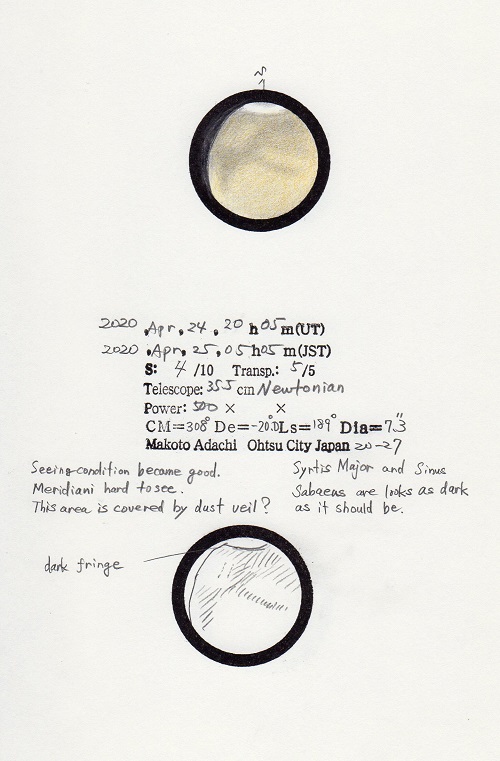 N
2020 Apr. 24, 20 h 05 m (UT)
2020 Apr. 25, 05 h 05 m (JST)
S: 4 /10 Transp.: 5/5
Telescope: 355 cm Newtonian
Power: 500 × ×
CM=308° De=-20.0° Ls=189° Dia=7.3"
Makoto Adachi Ohtsu City Japan 20-27
Seeing condition become good.
Meridiani hard to see.
This area is covered by dust veil?
Syrtis Major and Sinus
Sabaeus are looks as dark
as it should be.
dark fringe